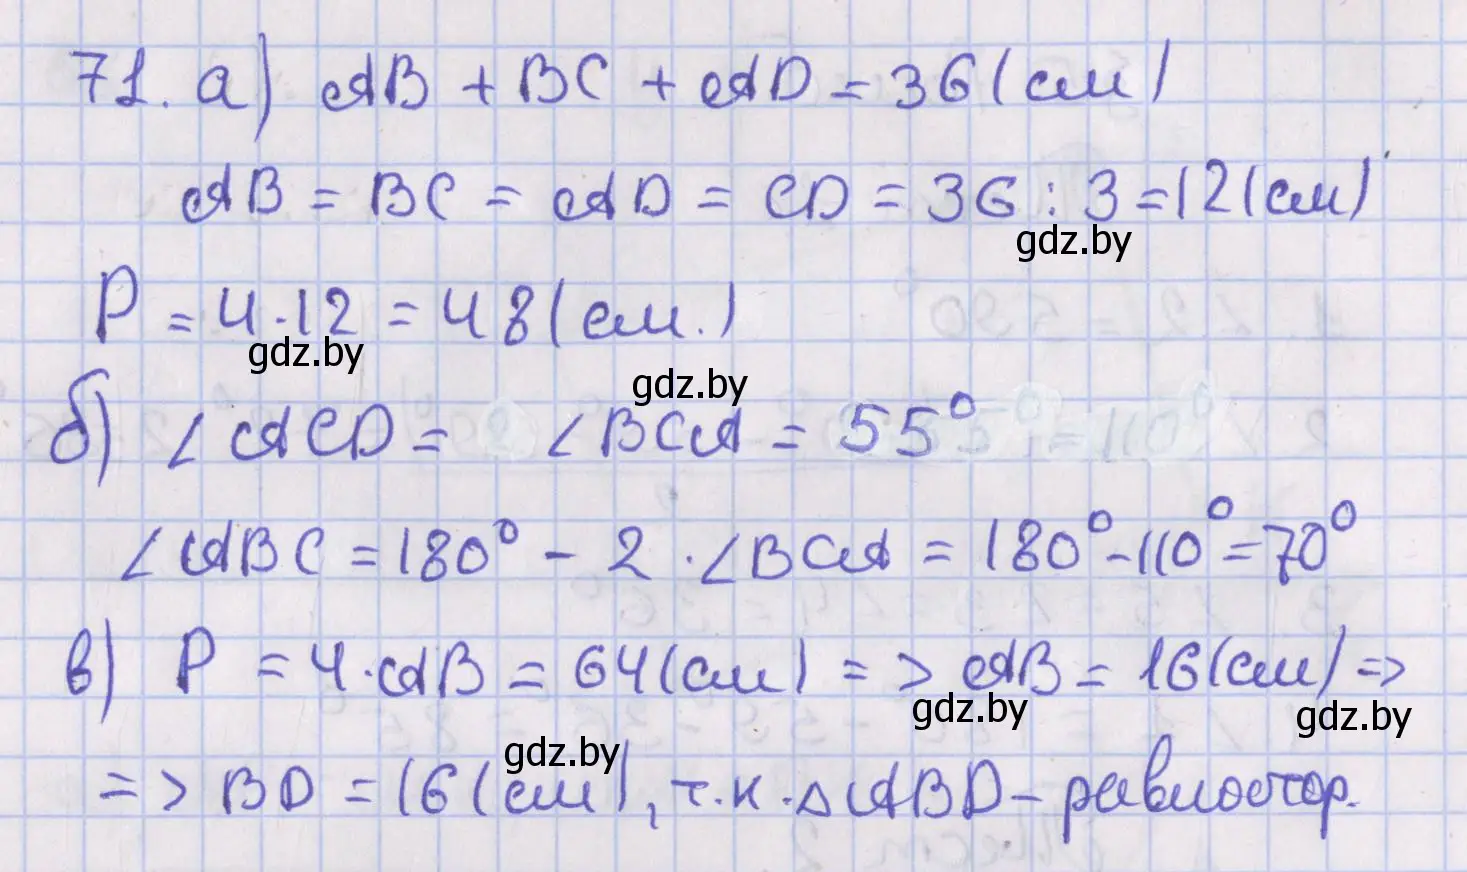 71. а) AB + BC + AD = 36 (см)
AB = BC = AD = CD = 36 : 3 = 12 (см)
gdz.by
P = 4 · 12 = 48 (см.)
gdz.by
gdz.by
б) ∠ACD = ∠BCA = 55°
∠ABC = 180° - 2 · ∠BCA = 180° - 110° = 70°
в) P = 4 · AB = 64 (см) => AB = 16 (см) =>
gdz.by
gdz.by
gdz.by
=> BD = 16 (см), т.к. △ABD - равностор.